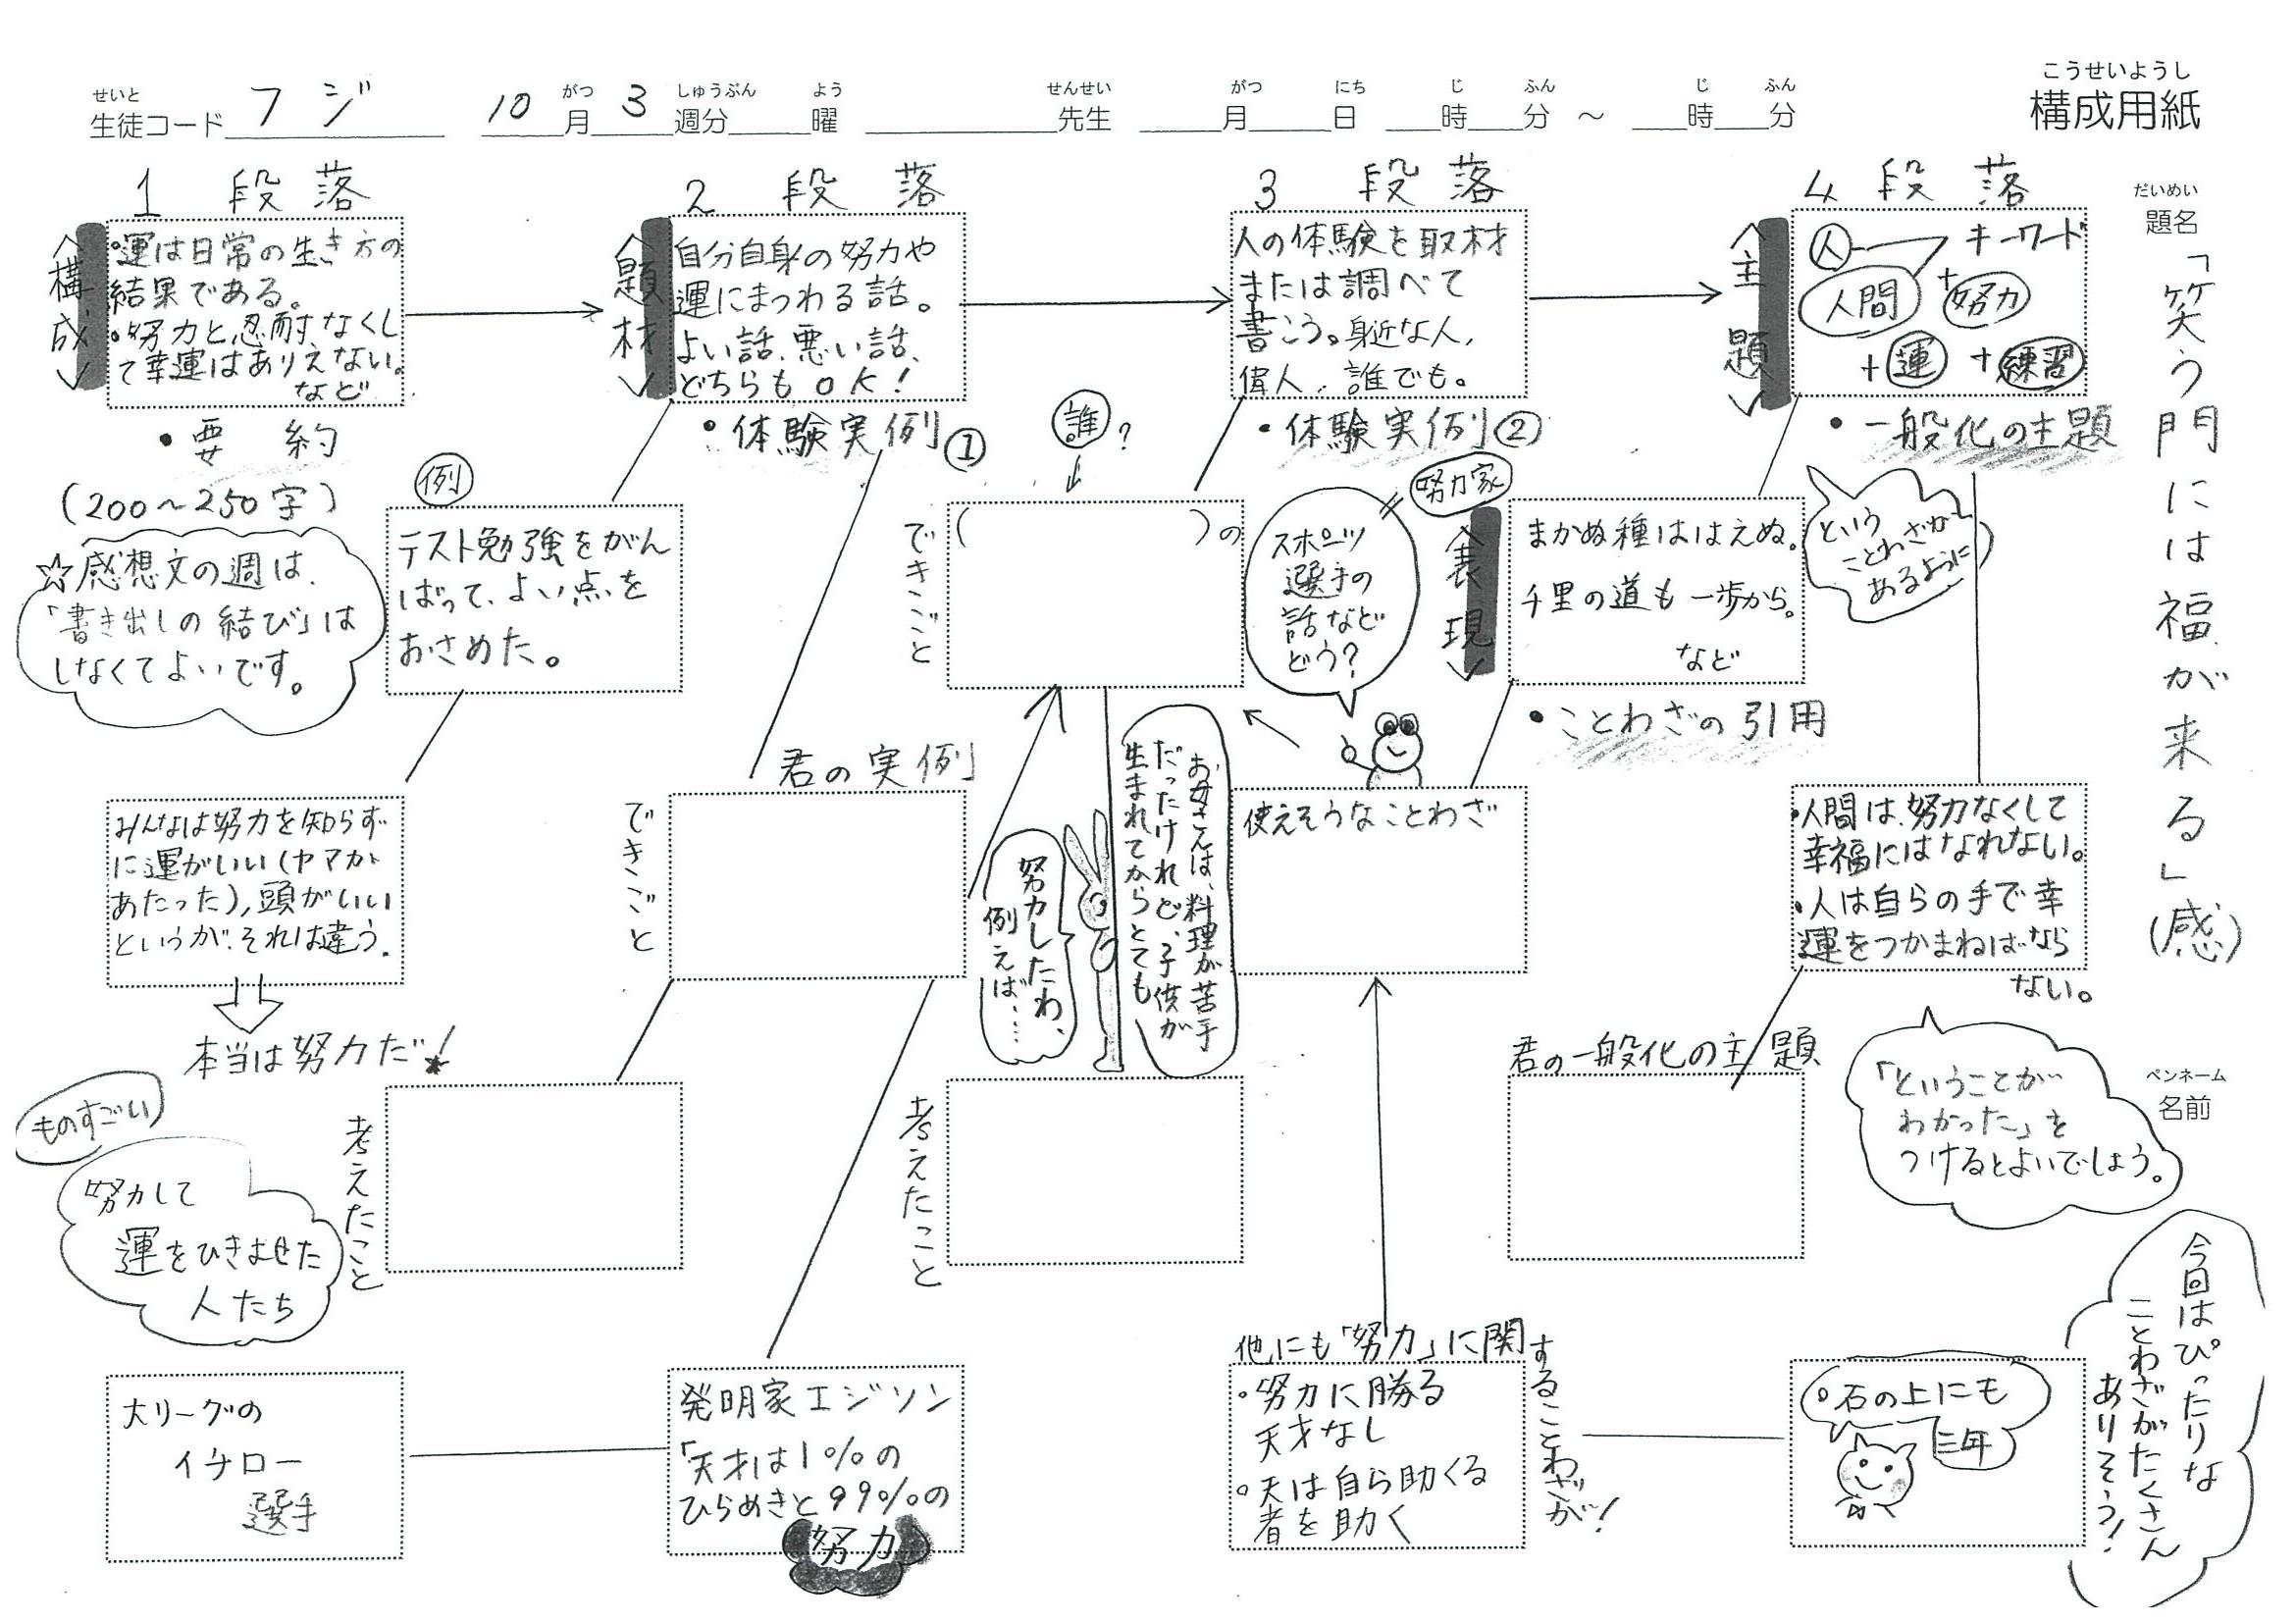 こうせいようし
構成用紙
せいと
生徒コード フジ
10月3週分 曜
がつ しゅうぶん よう
せんせい
先生
がつ にち じ ふん じ ふん
月 日 時 分 ～ 時 分
だいめい
題名
「笑う門には福が来る」(感)
ペンネーム
名前
1 段落
<構成>
・運は日常の生き方の
結果である。
・努力と忍耐なくし
て幸運はありえない。
など
・要約
(200〜250字)
☆感想文の週は、
「書き出しの結び」は
しなくてよいです。
2 段落
<題材>
自分自身の努力や
運にまつわる話。
よい話、悪い話、
どちらもOK!
・体験実例①
例
テスト勉強をがん
ばって、よい点を
おさめた。
みんなは努力を知らず
に運がいい(ヤマが
あたった)、頭がいい
というが、それは違う。
本当は努力だ!
君の実例
できごと
考えたこと
ものすごい
努力して
運をひきよせた
人たち
大リーグの
イチロー
選手
発明家エジソン
「天才は1%の
ひらめきと99%の
努力
3 段落
人の体験を取材
または調べて
書こう。身近な人、
偉人、誰でも。
・体験実例②
誰?
できごと
( )の
スポーツ
選手の
話など
どう?
努力家
努力したわ、
例えば、…
お母さんは、料理が苦手
だったけれど、子供が
生まれてからとても
考えたこと
4 段落
<主題>
人 キーワード
人間 + 努力
+ 運 + 練習
・一般化の主題
<表現>
まかぬ種ははえぬ。
千里の道も一歩から。
など
という
ことわざが
あるように
・ことわざの引用
使えそうなことわざ
・人間は、努力なくして
幸福にはなれない。
・人は自らの手で幸
運をつかまねばなら
ない。
君の一般化の主題
「ということが
わかった」を
つけるとよいでしょう。
他にも「努力」に関することわざが!
・努力に勝る
天才なし
・天は自ら助くる
者を助く
・石の上にも
三年
今回はぴったりな
ことわざがたくさん
ありそう!